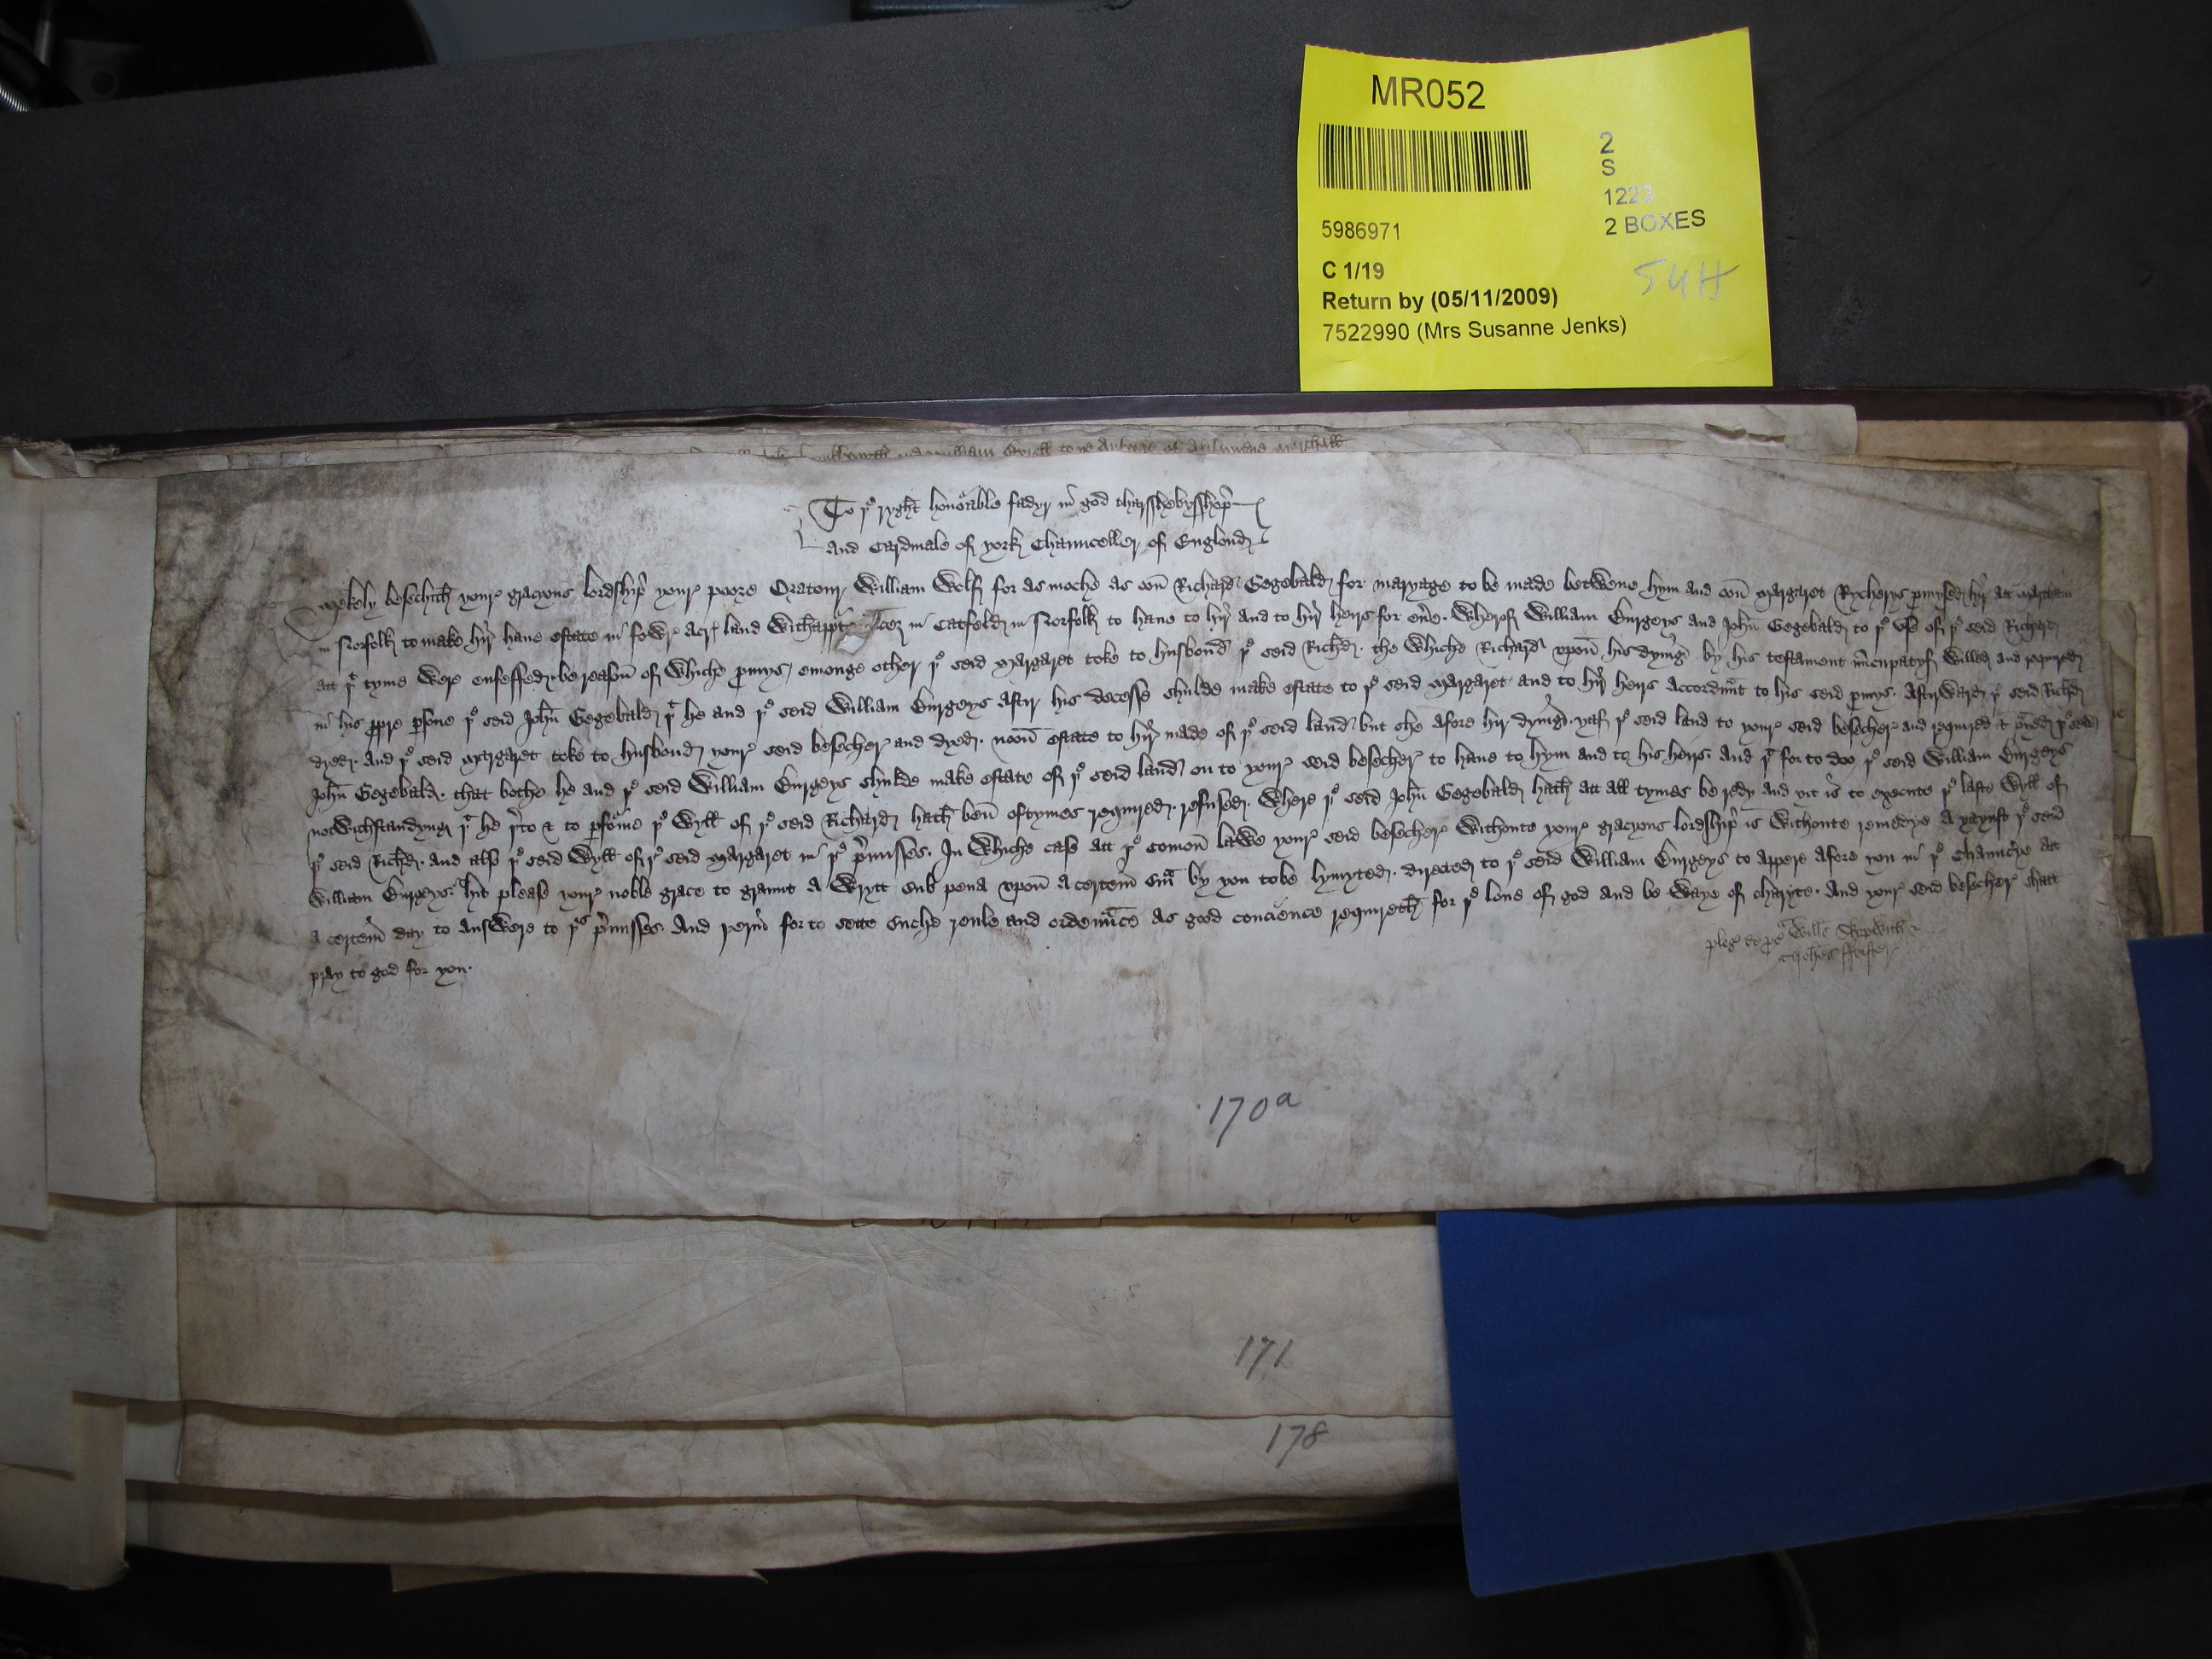 MR052
2
S
1223
2 BOXES
5986971
C 1/19
54H
Return by (05/11/2009)
7522990 (Mrs Susanne Jenks)
To þe ryght honorable fadyr in god tharsshebysshop
and Cardinale of york Chaunceller of Englond
Mekely besechith your gracyous lordship your poore Oratour William Welk for as moche as oon Richard Gegebald for maryage to be made betwene hym and oon Margaret Rycherys promysed hyr att Martham
in Norfolk to make hyr haue estate in fowr acr land with in Catfeld in Norfolk to haue to hyr and to hyr heirs for euer. Wherof William Burgeys and John Gegebald to þe vse of þe seid Richard
att þt tyme were enfeffed. be reason of whiche promys emonge other þe seid Margaret toke to husbond þe seid Richard. the whiche Richard vpon his dying by his testament nuncupatyf willed and required
in his propre persone þe seid John Gegebald þt he and þe seid William Burgeys aftir his decesse shulde make estate to þe seid Margaret and to hyr heirs accordint to his seid promys. Aftirward þe seid Richard
dyed. And þe seid Margaret toke to husbond your seid besecher and dyed. noon estate to hyr made of þe seid land but she afore hir dying yaf þe seid land to your seid besecher and required & þe seid
John Gegebald. that bothe he and þe seid William Burgeys shulde make estate of þe seid land on to your seid besecher to haue to hym and to his heirs. And þt for to doo þe seid William Burgeys
notwithstandyng þt he þerto & to perforne þe wyll of þe seid Richard hath ben oftymes required. refused. Where þe seid John Gegebald hath att all tymes be redy and yit is to execute þe laste wyll of
þe seid Richard. and also þe seid wyll of þe seid Margaret in þe premisses. In whiche case att þe comon lawe your seid besecher withoute your gracyous lordship is withoute remedye Ayeynst þe seid
William Burgeys. Hit please your noble grace to graunt A wrytt sub pena vpon A certein sum by you to be lymyted. directed to þe seid William Burgeys to appere afore you in þe Chauncrye att
A certein day to answere to þes premisses. And þerin for to sette suche reule and ordenunce as good concience requireth for þe loue of god and be waye of charyte. And your seid besecher shall
pray to god for you.
pleg de pro Wills Skypwith
Johes ffoster
170a
171
178